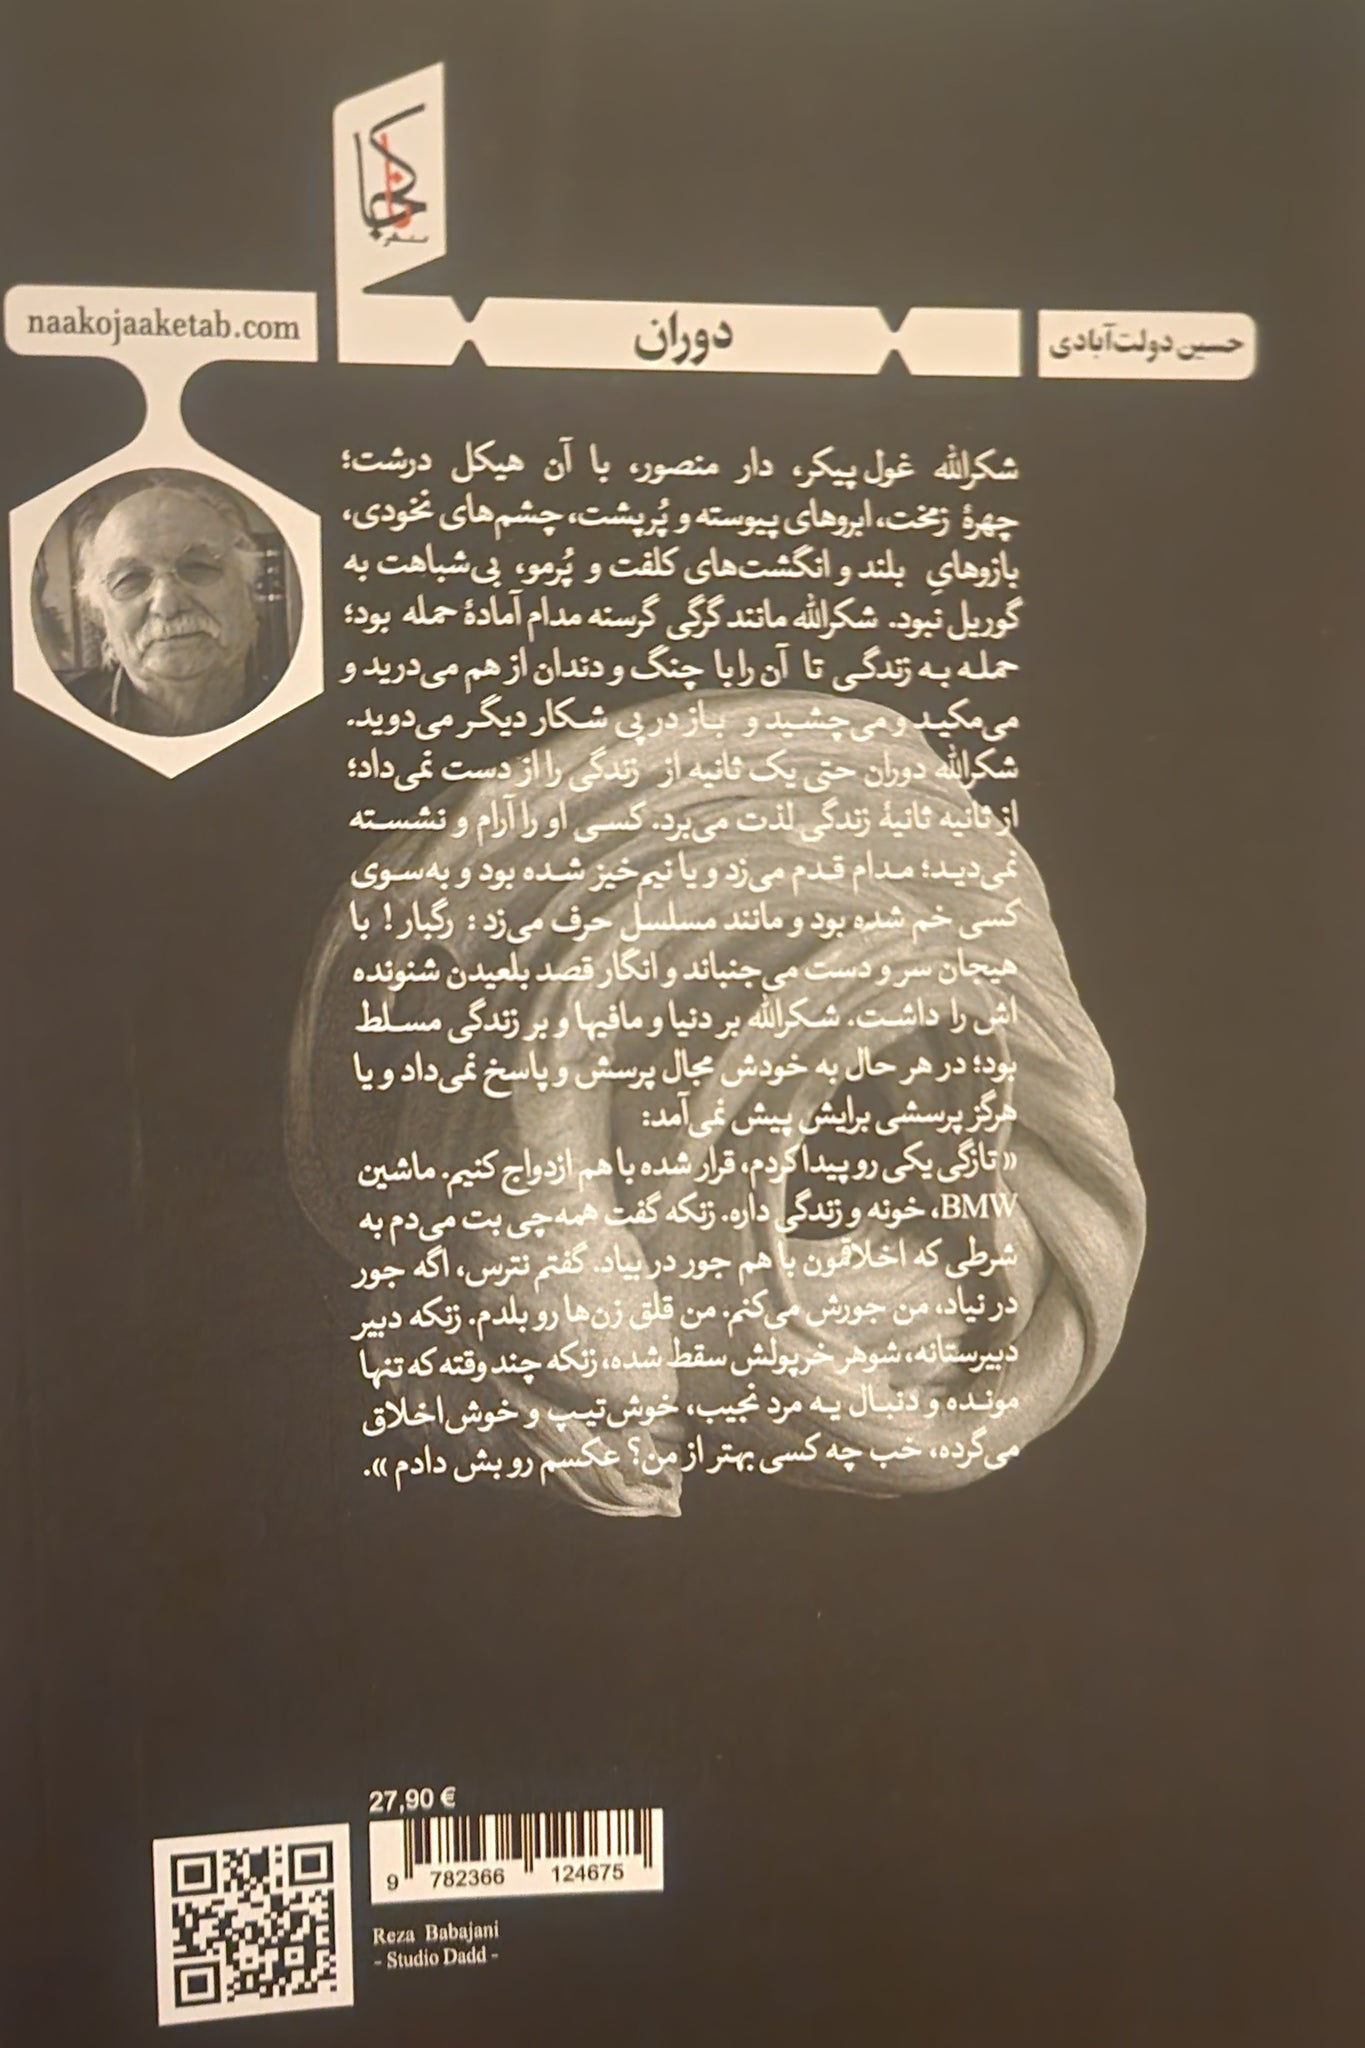 نشر
ناکجا
naakojaaketab.com
دوران
حسین دولت‌آبادی
شکرالله غول‌پیکر، دار منصور، با آن هیکل درشت؛
چهرهٔ زمخت، ابروهای پیوسته و پُرپشت، چشم‌های نخودی،
بازوهایِ بلند و انگشت‌های کلفت و پُرمو، بی‌شباهت به
گوریل نبود. شکرالله مانند گرگی گرسنه مدام آمادهٔ حمله بود؛
حمله به زندگی تا آن را با چنگ و دندان از هم می‌درید و
می‌مکید و می‌چشید و باز در پی شکار دیگر می‌دوید.
شکرالله دوران حتی یک ثانیه از زندگی را از دست نمی‌داد؛
از ثانیه ثانیهٔ زندگی لذت می‌برد. کسی او را آرام و نشسته
نمی‌دید؛ مدام قدم می‌زد و یا نیم‌خیز شده بود و به‌سوی
کسی خم شده بود و مانند مسلسل حرف می‌زد: رگبار! با
هیجان سر و دست می‌جنباند و انگار قصد بلعیدن شنونده
اش را داشت. شکرالله بر دنیا و مافیها و بر زندگی مسلط
بود؛ در هر حال به خودش مجال پرسش و پاسخ نمی‌داد و یا
هرگز پرسشی برایش پیش نمی‌آمد:
«تازگی یکی رو پیدا کردم، قرار شده با هم ازدواج کنیم. ماشین
BMW، خونه و زندگی داره. زنکه گفت همه‌چی بت می‌دم به
شرطی که اخلاقمون با هم جور در بیاد. گفتم نترس، اگه جور
در نیاد، من جورش می‌کنم. من قلق زن‌ها رو بلدم. زنکه دبیر
دبیرستانه، شوهر خرپولش سقط شده، زنکه چند وقته که تنها
مونده و دنبال یه مرد نجیب، خوش‌تیپ و خوش‌اخلاق
می‌گرده، خب چه کسی بهتر از من؟ عکسم رو بش دادم».
27,90 €
9 782366 124675
Reza Babajani
- Studio Dadd -